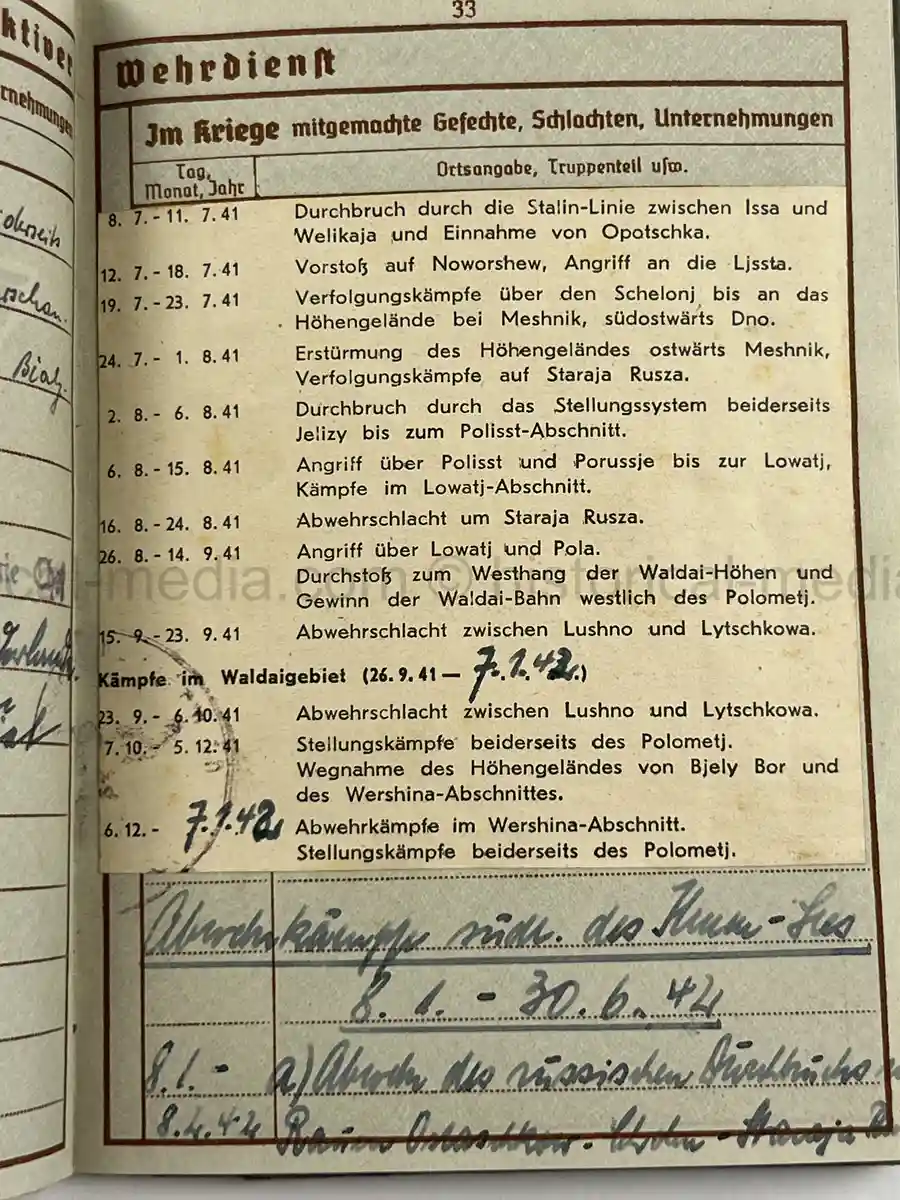 33
ktiver
rnehmungen
Wehrdienst
Im Kriege mitgemachte Gefechte, Schlachten, Unternehmungen
Tag, Monat, Jahr
Ortsangabe, Truppenteil usw.
8. 7. - 11. 7. 41 Durchbruch durch die Stalin-Linie zwischen Issa und
Welikaja und Einnahme von Opotschka.
12. 7. - 18. 7. 41 Vorstoß auf Noworshew, Angriff an die Ljssta.
19. 7. - 23. 7. 41 Verfolgungskämpfe über den Schelonj bis an das
Höhengelände bei Meshnik, südostwärts Dno.
24. 7. - 1. 8. 41 Erstürmung des Höhengeländes ostwärts Meshnik,
Verfolgungskämpfe auf Staraja Rusza.
2. 8. - 6. 8. 41 Durchbruch durch das Stellungssystem beiderseits
Jelizy bis zum Polisst-Abschnitt.
6. 8. - 15. 8. 41 Angriff über Polisst und Porussje bis zur Lowatj,
Kämpfe im Lowatj-Abschnitt.
16. 8. - 24. 8. 41 Abwehrschlacht um Staraja Rusza.
26. 8. - 14. 9. 41 Angriff über Lowatj und Pola.
Durchstoß zum Westhang der Waldai-Höhen und
Gewinn der Waldai-Bahn westlich des Polometj.
15. 9. - 23. 9. 41 Abwehrschlacht zwischen Lushno und Lytschkowa.
Kämpfe im Waldaigebiet (26. 9. 41 — 7.1.42.)
23. 9. - 6. 10. 41 Abwehrschlacht zwischen Lushno und Lytschkowa.
7. 10. - 5. 12. 41 Stellungskämpfe beiderseits des Polometj.
Wegnahme des Höhengeländes von Bjely Bor und
des Wershina-Abschnittes.
6. 12. - 7.1.42 Abwehrkämpfe im Wershina-Abschnitt.
Stellungskämpfe beiderseits des Polometj.
Abwehrkämpfe südl. des Ilmen-Sees
8. 1. - 30. 6. 42
8.1. - a) Abwehr des russischen Durchbruchs
8.4.42 Raum Ostaschkow - Cholm - Staraja